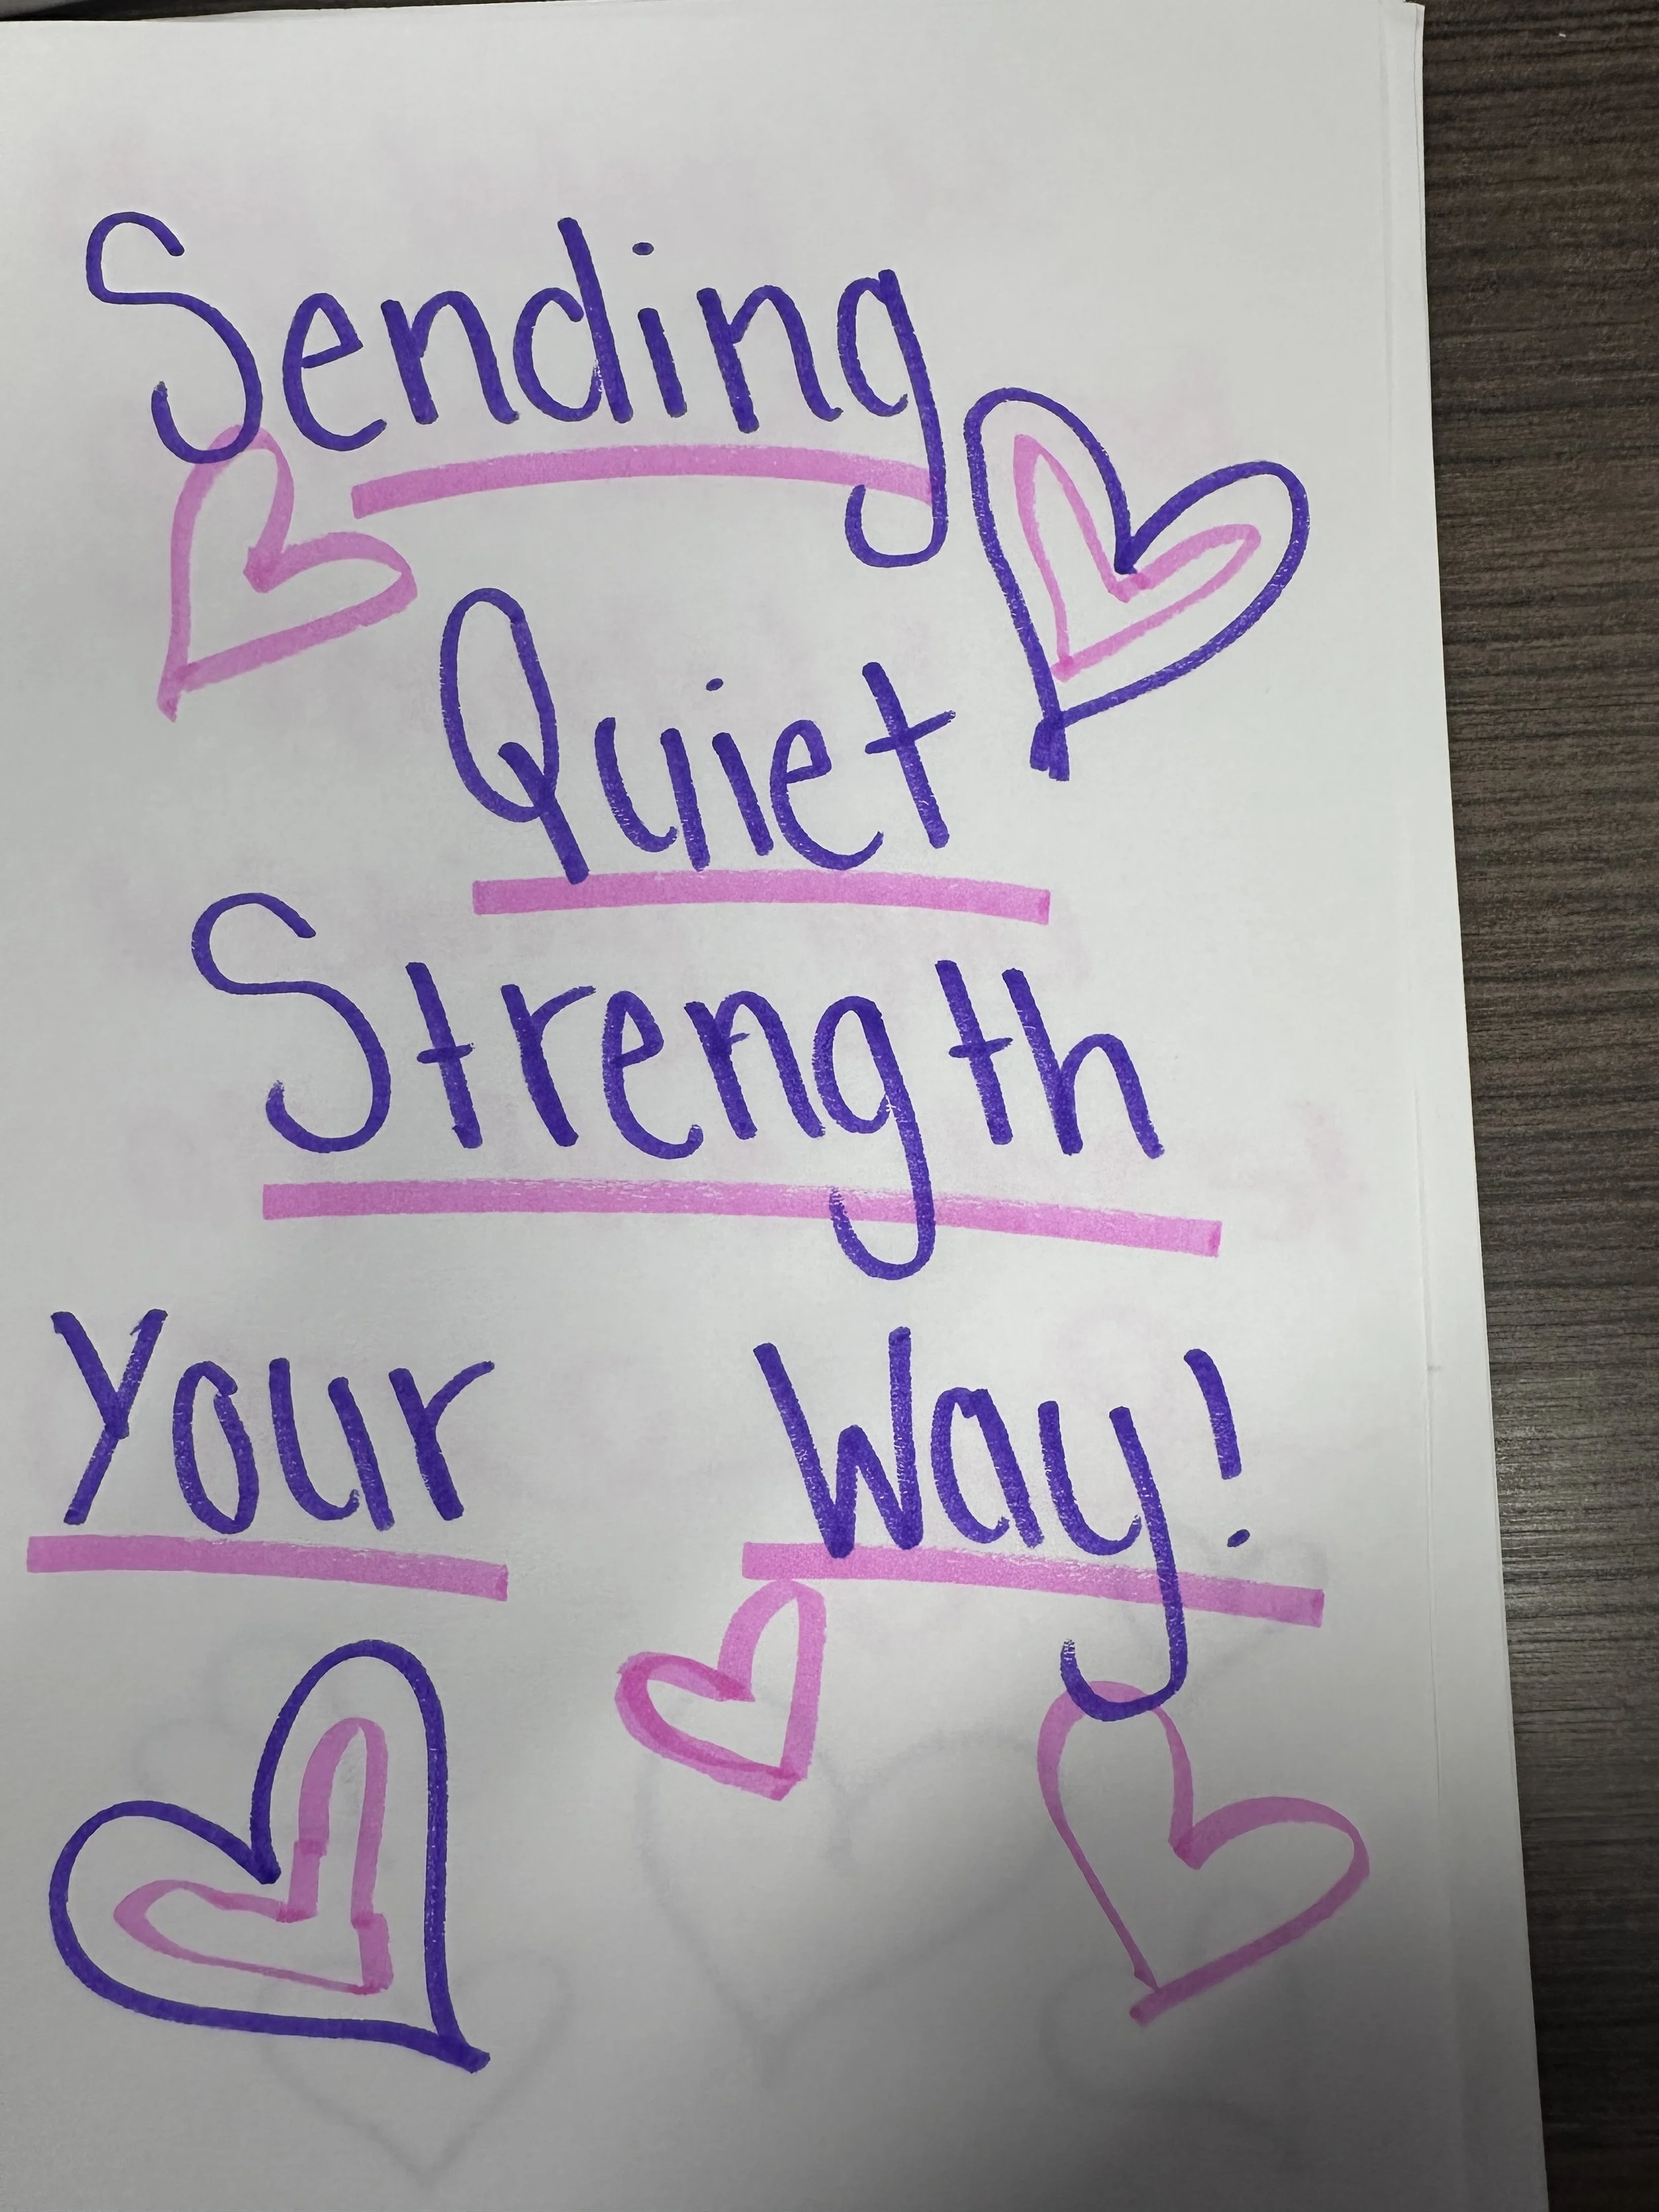 Sending
Quiet
Strength
Your Way!